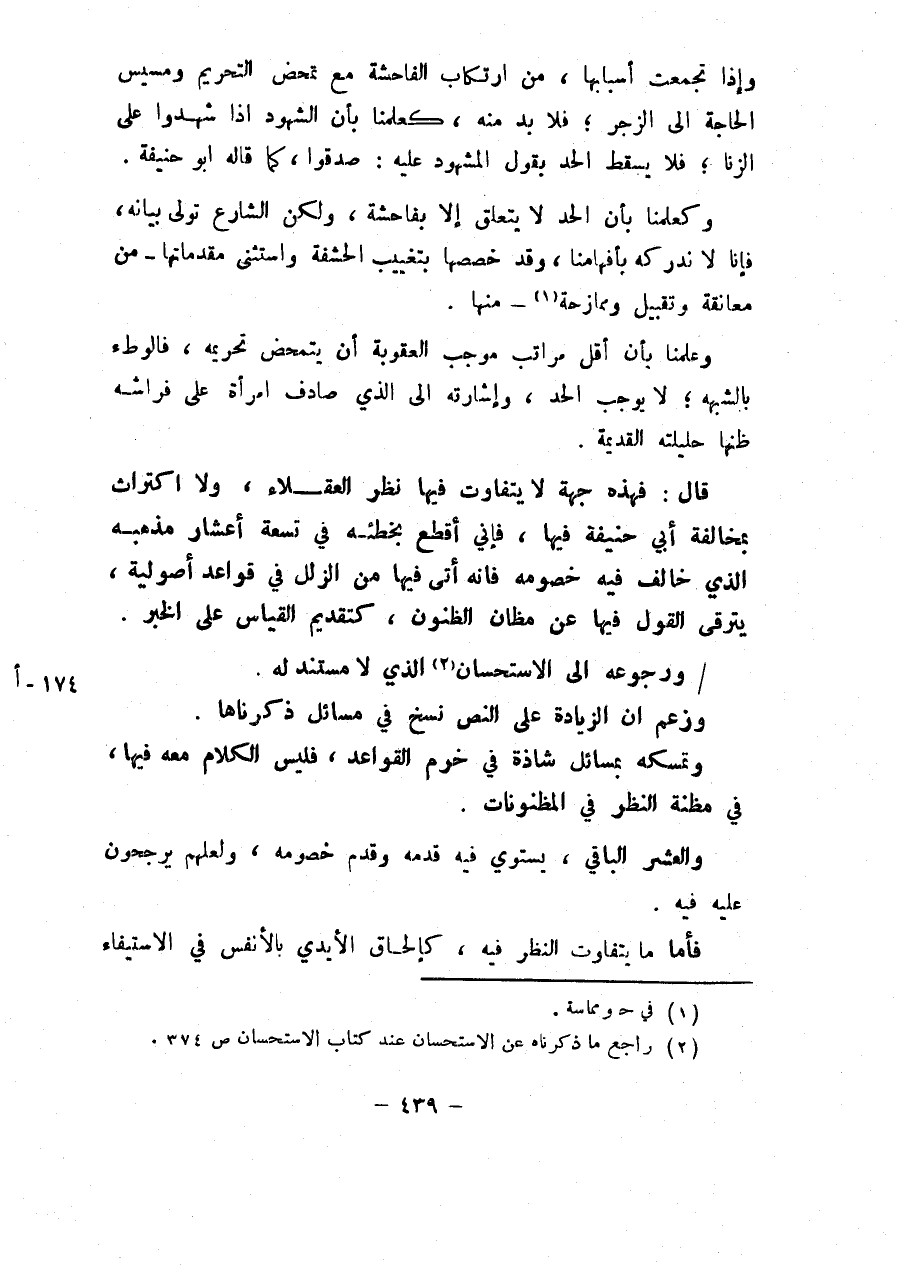 وإذا تجمعت أسبابها ، من ارتكاب الفاحشة مع تمحض التحريم ومسيس
الحاجة الى الزجر ؛ فلا بد منه ، كعلمنا بأن الشهود اذا شهدوا على
الزنا ؛ فلا يسقط الحد بقول المشهود عليه : صدقوا ، كما قاله ابو حنيفة .
وكعلمنا بأن الحد لا يتعلق إلا بفاحشة ، ولكن الشارع تولى بيانه ،
فإنا لا ندركه بأفهامنا ، وقد خصصها بتغييب الحشفة واستثنى مقدماتها - من
معانقة وتقبيل وممازحة (١) - منها .
وعلمنا بأن أقل مراتب موجب العقوبة أن يتمحض تحريمه ، فالوطء
بالشبهه ؛ لا يوجب الحد ، وإشارته الى الذي صادف امرأة على فراشه
ظنها حليلته القديمة .
قال : فهذه جهة لا يتفاوت فيها نظر العقلاء ، ولا اكتراث
بمخالفة أبي حنيفة فيها ، فإني أقطع بخطئه في تسعة أعشار مذهبه
الذي خالف فيه خصومه فانه أتى فيها من الزلل في قواعد أصولية ،
يترقى القول فيها عن مظان الظنون ، كتقديم القياس على الخبر .
/ ورجوعه الى الاستحسان (٢) الذي لا مستند له .
١٧٤ - أ
وزعم ان الزيادة على النص نسخ في مسائل ذكرناها .
وتمسكه بمسائل شاذة في خرم القواعد ، فليس الكلام معه فيها ،
في مظنة النظر في المظنونات .
والعشر الباقي ، يستوي فيه قدمه وقدم خصومه ، ولعلهم يرجحون
عليه فيه .
فأما ما يتفاوت النظر فيه ، كإلحاق الأيدي بالأنفس في الاستيفاء
(١) في ح و مماسة .
(٢) راجع ما ذكرناه عن الاستحسان عند كتاب الاستحسان ص ٣٧٤ .
- ٤٣٩ -